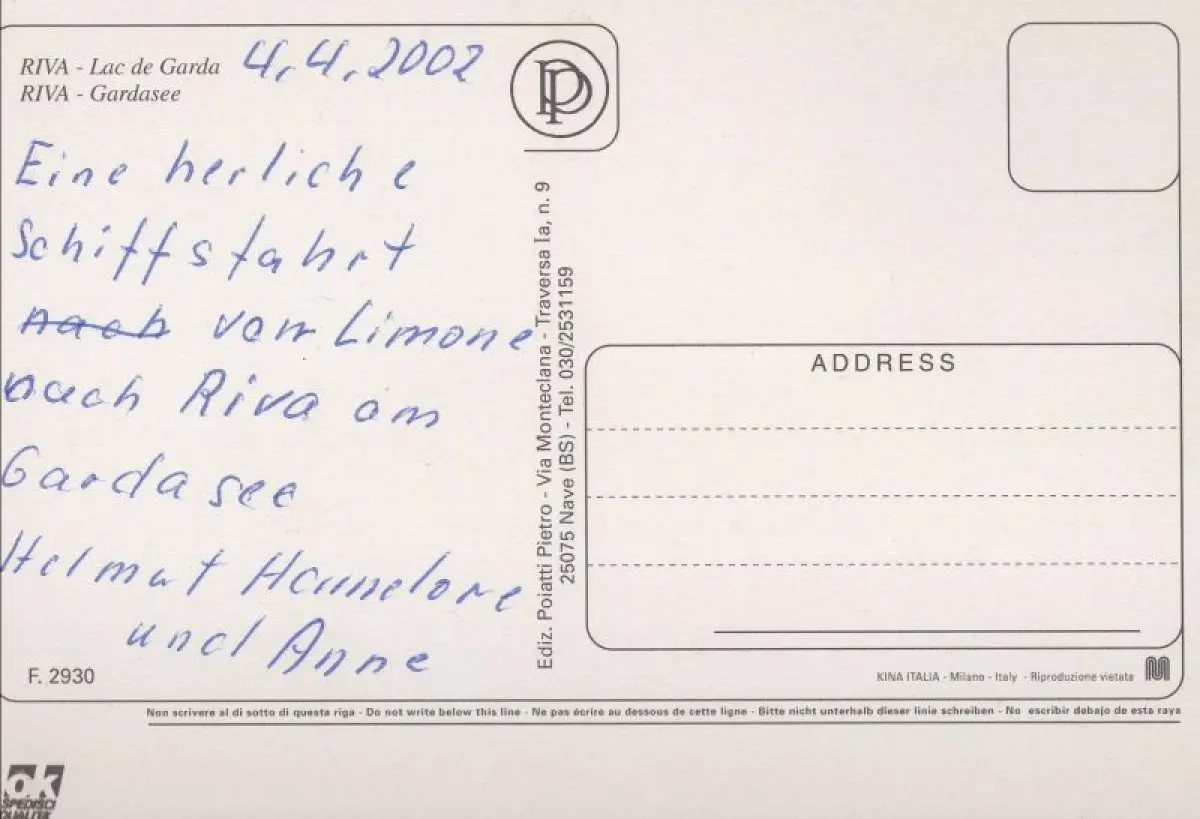 RIVA - Lac de Garda
RIVA - Gardasee
4.4.2002
PP
Eine herliche
Schiffsfahrt
nach von Limone
nach Riva am
Gardasee
Helmut Hannelore
und Anne
F. 2930
Ediz. Poiatti Pietro - Via Monteclana - Traversa Ia, n. 9
25075 Nave (BS) - Tel. 030/2531159
ADDRESS
KINA ITALIA - Milano - Italy - Riproduzione vietata
Non scrivere al di sotto di questa riga - Do not write below this line - Ne pas écrire au dessous de cette ligne - Bitte nicht unterhalb dieser linie schreiben - No escribir debajo de esta raya
ok
SPEDISCI
QUALITÀ